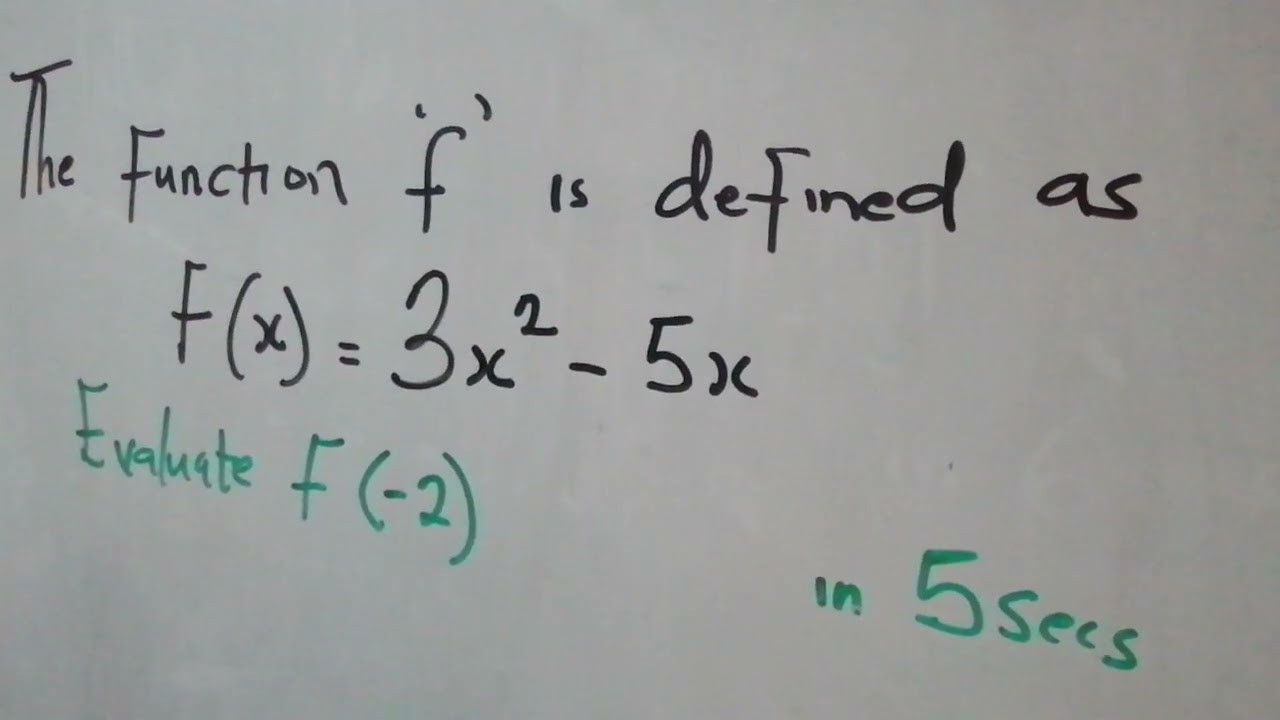 The Function 'f' is defined as
F(x) = 3x² - 5x
Evaluate F(-2)
in 5secs